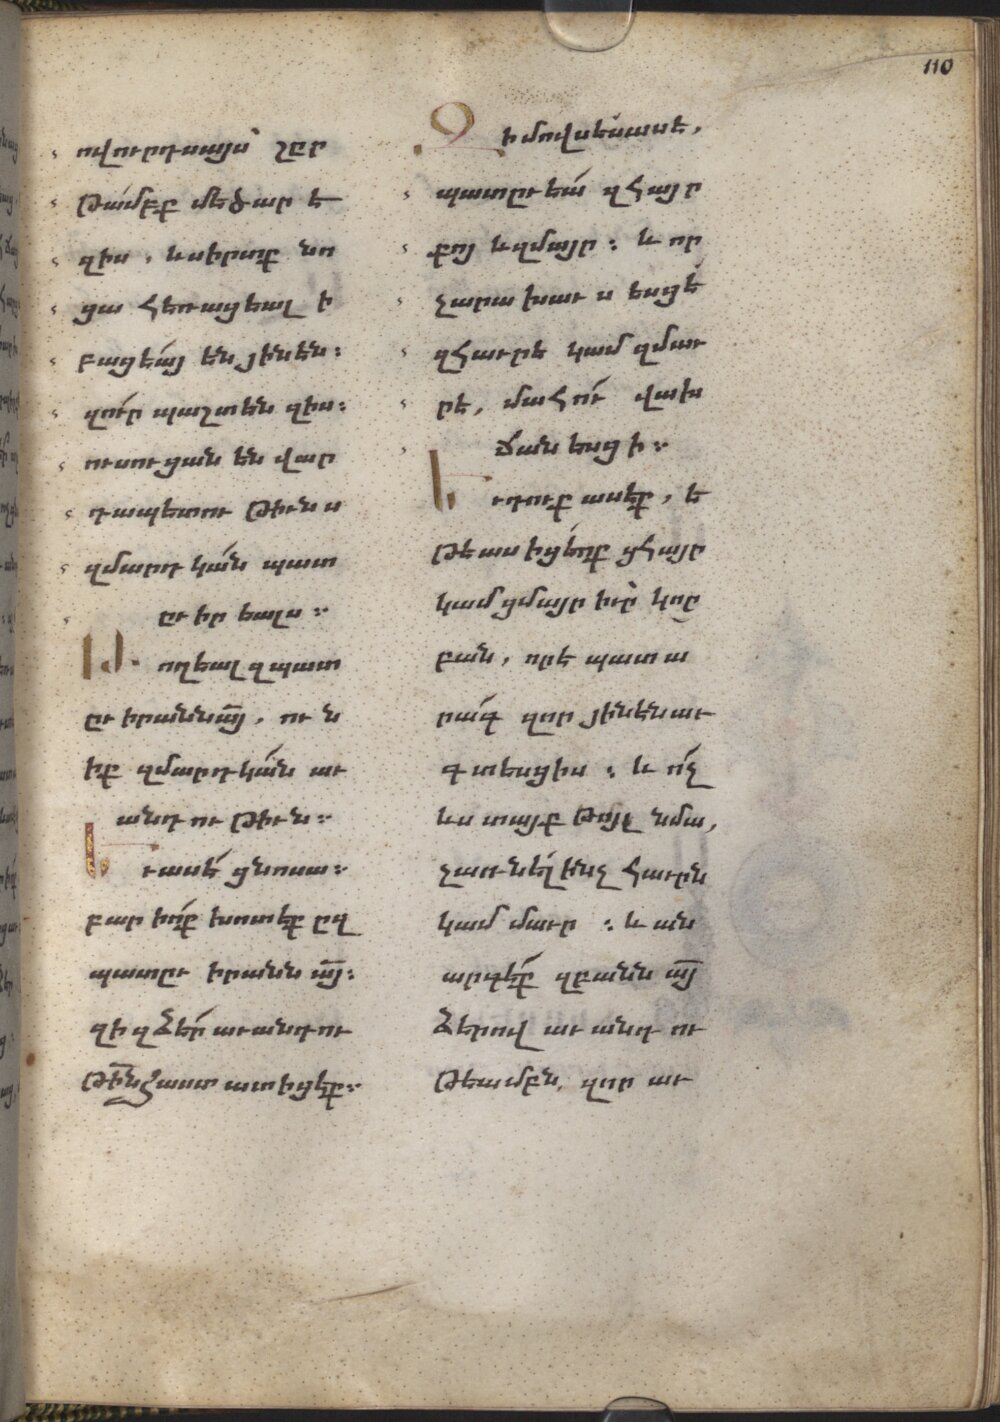 110
ովուրդսայս՝ շըր
թա́մբք մեծար է
զիս, ևսիրտք նո
ցա հեռացեալ ի
բացե́այ են յինէն։
զո́ւր պաշտեն զիս։
ուսուցան են վար
դապետու թիւնս
զմարդ կա́ն պատ
ըւ իր եալս։
Թողեալ զպատ
ըւ իրաննա̅յ, ու ն
իք զմարդկա́ն աւ
անդ ու թիւն։
Եւասե́ ցնոսա։
բար իո́ք խոտէք ըզ
պատըւ իրանն ա̅յ։
զի զձե́ր աւանդու
թի̅նհաստ ատիցէք։
Զի մովսե́սասէ,
պատըւ եա́ զհայր
քոյ ևզմայր։ և որ
չարա խաւ ս եսցէ́
զհաւրէ կամ զմաւ
րէ, մահո́ւ վախ
ճան եսց ի։
Եւ դուք ասէ́ք, ե
թե աս իցէ ո́ք ցհայր
կամ ցմայր իւր̀ կոր
բան, որէ պատ ա
րա́գ զոր յինէն աւ
գ տեսցիս։ և ո́չ
ևս տայք թոյլ նմա,
չառնե́լ ինչ հաւրն
կամ մաւր։ և ան
արգէ́ք զբանն ա̅յ
ձերով աւ անդ ու
թեամբն, զոր աւ